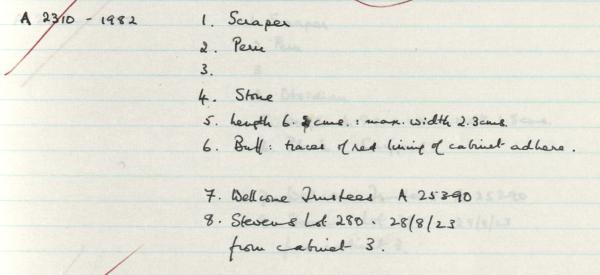 A 2310 - 1982 1. Scraper
2. Peru
3.
4. Stone
5. Length 6. cms. : max. width 2.3 cms.
6. Buff : traces of red lining of cabinet adhere.
7. Wellcome Trustees A 25390
8. Stevens Lot 280 . 28/8/23
from cabinet 3.